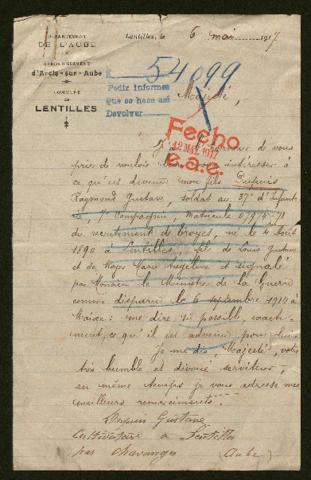 DÉPARTEMENT
DE L'AUBE
ARRONDISSEMENT
d'Arcis-sur-Aube
COMMUNE
DE
LENTILLES
Lentilles, le 6 mai 1917
54099
Pedir informes
Que se haga así
Devolver
Fecho
12 MAY. 1917
J'ai l'honneur de vous
prier de vouloir bien vous intéresser à
ce qu'est devenu mon fils Dupuis
Raymond Gustave, soldat au 37e d'Infanterie
Compagnie, Matricule
du recrutement de Troyes, né le août
1890 à Lentilles, fils de Louis Gustave
et de Marie Angeline et signalé
par Monsieur le Ministre de la Guerre
comme disparu le 6 septembre 1914 à
me dire si possible,
ce qu'il est advenu
Je suis de Majesté, votre
très humble et dévoué serviteur,
en même temps je vous adresse mes
meilleurs remerciements.
Dupuis Gustave
Cultivateur à Lentilles
par Chavanges (Aube)